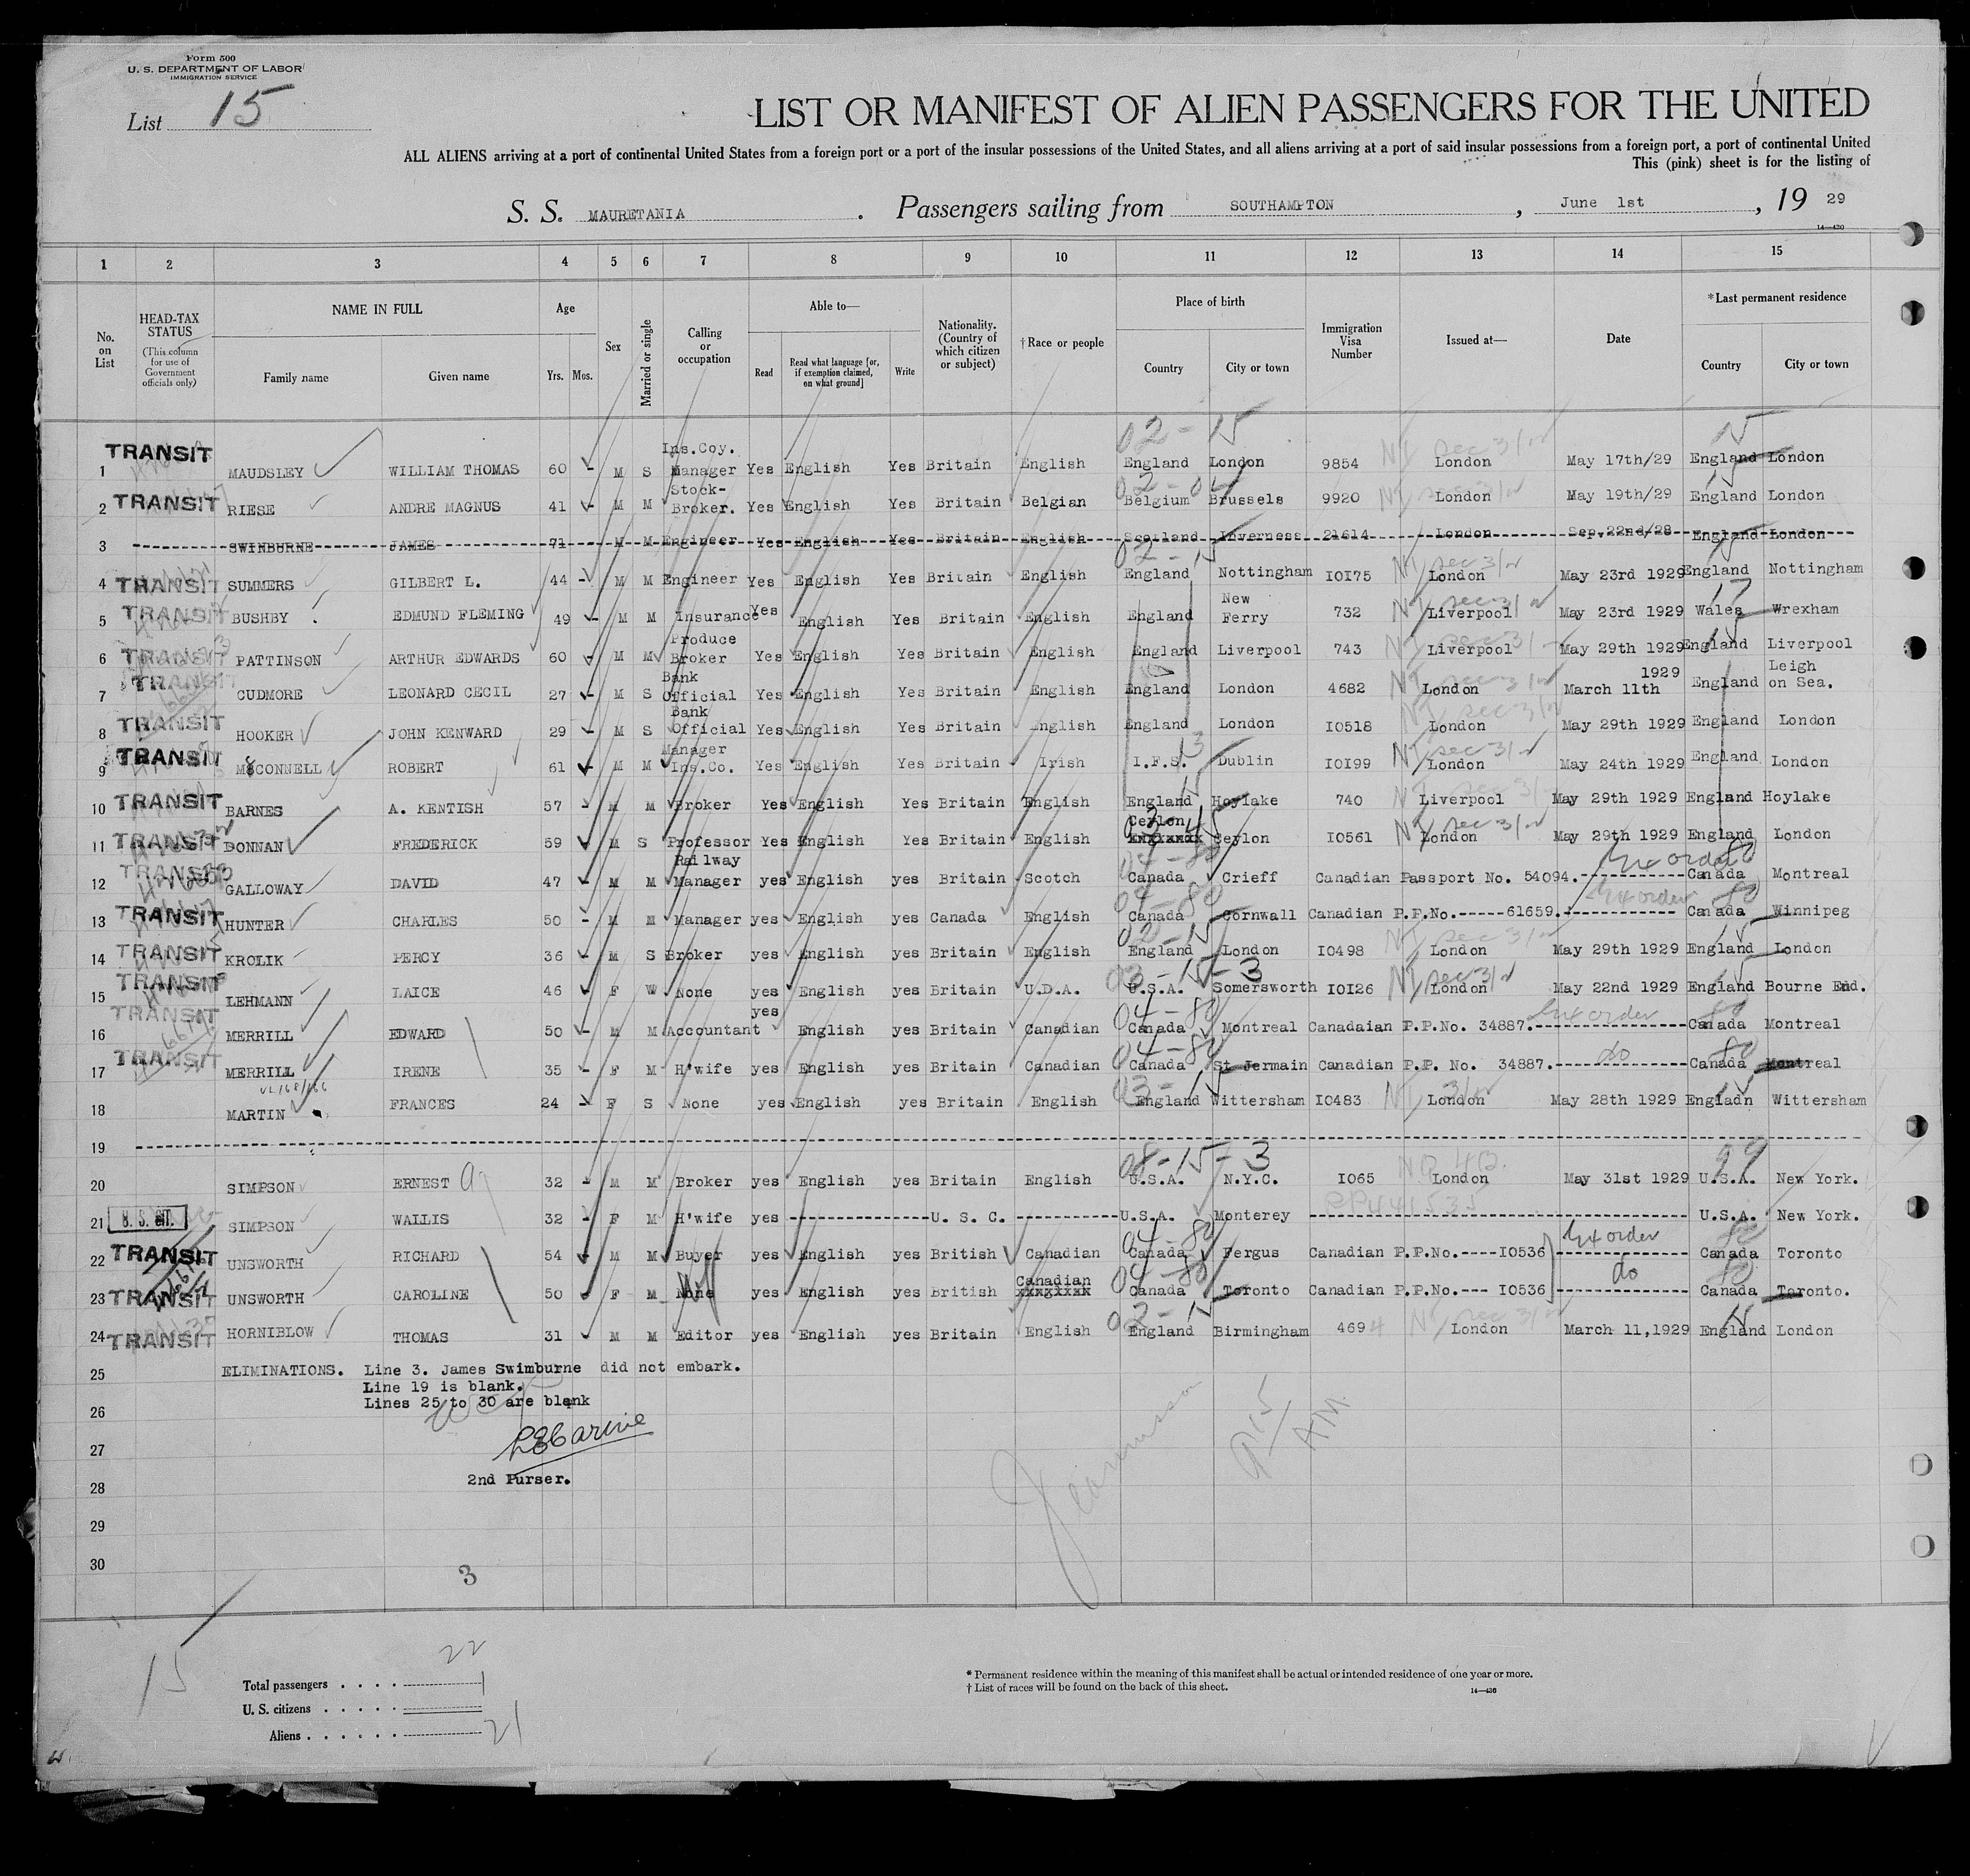 Form 500
U. S. DEPARTMENT OF LABOR
IMMIGRATION SERVICE
List 15
LIST OR MANIFEST OF ALIEN PASSENGERS FOR THE UNITED
ALL ALIENS arriving at a port of continental United States from a foreign port or a port of the insular possessions of the United States, and all aliens arriving at a port of said insular possessions from a foreign port, a port of continental United
This (pink) sheet is for the listing of
S. S. MAURETANIA. Passengers sailing from SOUTHAMPTON, June 1st, 19 29
14—430
1 2 3 4 5 6 7 8 9 10 11 12 13 14 15
No. on List
HEAD-TAX STATUS (This column for use of Government officials only)
NAME IN FULL Family name Given name
Age Yrs. Mos.
Sex
Married or single
Calling or occupation
Able to— Read Read what language [or, if exemption claimed, on what ground] Write
Nationality. (Country of which citizen or subject)
†Race or people
Place of birth Country City or town
Immigration Visa Number
Issued at—
Date
*Last permanent residence Country City or town
1 TRANSIT MAUDSLEY WILLIAM THOMAS 60 - M S Ins.Coy. Manager Yes English Yes Britain English England London 9854 London May 17th/29 England London
2 TRANSIT RIESE ANDRE MAGNUS 41 - M M Stock-Broker. Yes English Yes Britain Belgian Belgium Brussels 9920 London May 19th/29 England London
3 SWINBURNE JAMES 71 M M Engineer Yes English Yes Britain English Scotland Inverness 21614 London Sep.22nd/28 England London
4 TRANSIT SUMMERS GILBERT L. 44 - M M Engineer Yes English Yes Britain English England Nottingham I0I75 London May 23rd 1929 England Nottingham
5 TRANSIT BUSHBY EDMUND FLEMING 49 - M M Insurance Yes English Yes Britain English England New Ferry 732 Liverpool May 23rd 1929 Wales Wrexham
6 TRANSIT PATTINSON ARTHUR EDWARDS 60 - M M Produce Broker Yes English Yes Britain English England Liverpool 743 Liverpool May 29th 1929 England Liverpool
7 TRANSIT CUDMORE LEONARD CECIL 27 - M S Bank Official Yes English Yes Britain English England London 4682 London March 11th 1929 England Leigh on Sea.
8 TRANSIT HOOKER JOHN KENWARD 29 - M S Bank Official Yes English Yes Britain English England London I0518 London May 29th 1929 England London
9 TRANSIT McCONNELL ROBERT 61 - M M Manager Ins.Co. Yes English Yes Britain Irish I.F.S. Dublin I0I99 London May 24th 1929 England London
10 TRANSIT BARNES A. KENTISH 57 - M M Broker Yes English Yes Britain English England Hoylake 740 Liverpool May 29th 1929 England Hoylake
11 TRANSIT DONNAN FREDERICK 59 M S Professor Yes English Yes Britain English Ceylon Ceylon I0561 London May 29th 1929 England London
12 TRANSIT GALLOWAY DAVID 47 - M M Railway Manager yes English yes Britain Scotch Canada Crieff Canadian Passport No. 54094.----------- Canada Montreal
13 TRANSIT HUNTER CHARLES 50 - M M Manager yes English yes Canada English Canada Cornwall Canadian P.P.No.-----61659.------------ Canada Winnipeg
14 TRANSIT KROLIK PERCY 36 - M S Broker yes English yes Britain English England London I0498 London May 29th 1929 England London
15 TRANSIT LEHMANN LAICE 46 - F W None yes English yes Britain U.D.A. U.S.A. Somersworth I0I26 London May 22nd 1929 England Bourne End.
16 TRANSIT MERRILL EDWARD 50 - M M Accountant yes English yes Britain Canadian Canada Montreal Canadaian P.P.No. 34887.---------------- Canada Montreal
17 TRANSIT MERRILL IRENE 35 - F M H'wife yes English yes Britain Canadian Canada St Jermain Canadian P.P. No. 34887.-------------- Canada Montreal
18 MARTIN FRANCES 24 - F S None yes English yes Britain English England Wittersham I0483 London May 28th 1929 Engladn Wittersham
19
20 SIMPSON ERNEST A 32 - M M Broker yes English yes Britain English U.S.A. N.Y.C. I065 London May 31st 1929 U.S.A. New York.
21 U. S. CIT. SIMPSON WALLIS 32 - F M H'wife yes --------------U. S. C. -----------U.S.A. Monterey U.S.A. New York.
22 TRANSIT UNSWORTH RICHARD 54 M M Buyer yes English yes British Canadian Canada Fergus Canadian P.P.No.----I0536 Canada Toronto
23 TRANSIT UNSWORTH CAROLINE 50 - F M None yes English yes British Canadian Canada Toronto Canadian P.P.No.--- I0536 Canada Toronto.
24 TRANSIT HORNIBLOW THOMAS 31 M M Editor yes English yes Britain English England Birmingham 4694 London March 11,1929 England London
25 ELIMINATIONS. Line 3. James Swimburne did not embark.
Line 19 is blank.
26 Lines 25 to 30 are blank
27
2nd Purser.
28
29
30
3
15
22
Total passengers . . . . 1
U. S. citizens . . . . .
Aliens . . . . . . 21
* Permanent residence within the meaning of this manifest shall be actual or intended residence of one year or more.
† List of races will be found on the back of this sheet.
14—430
915
AM